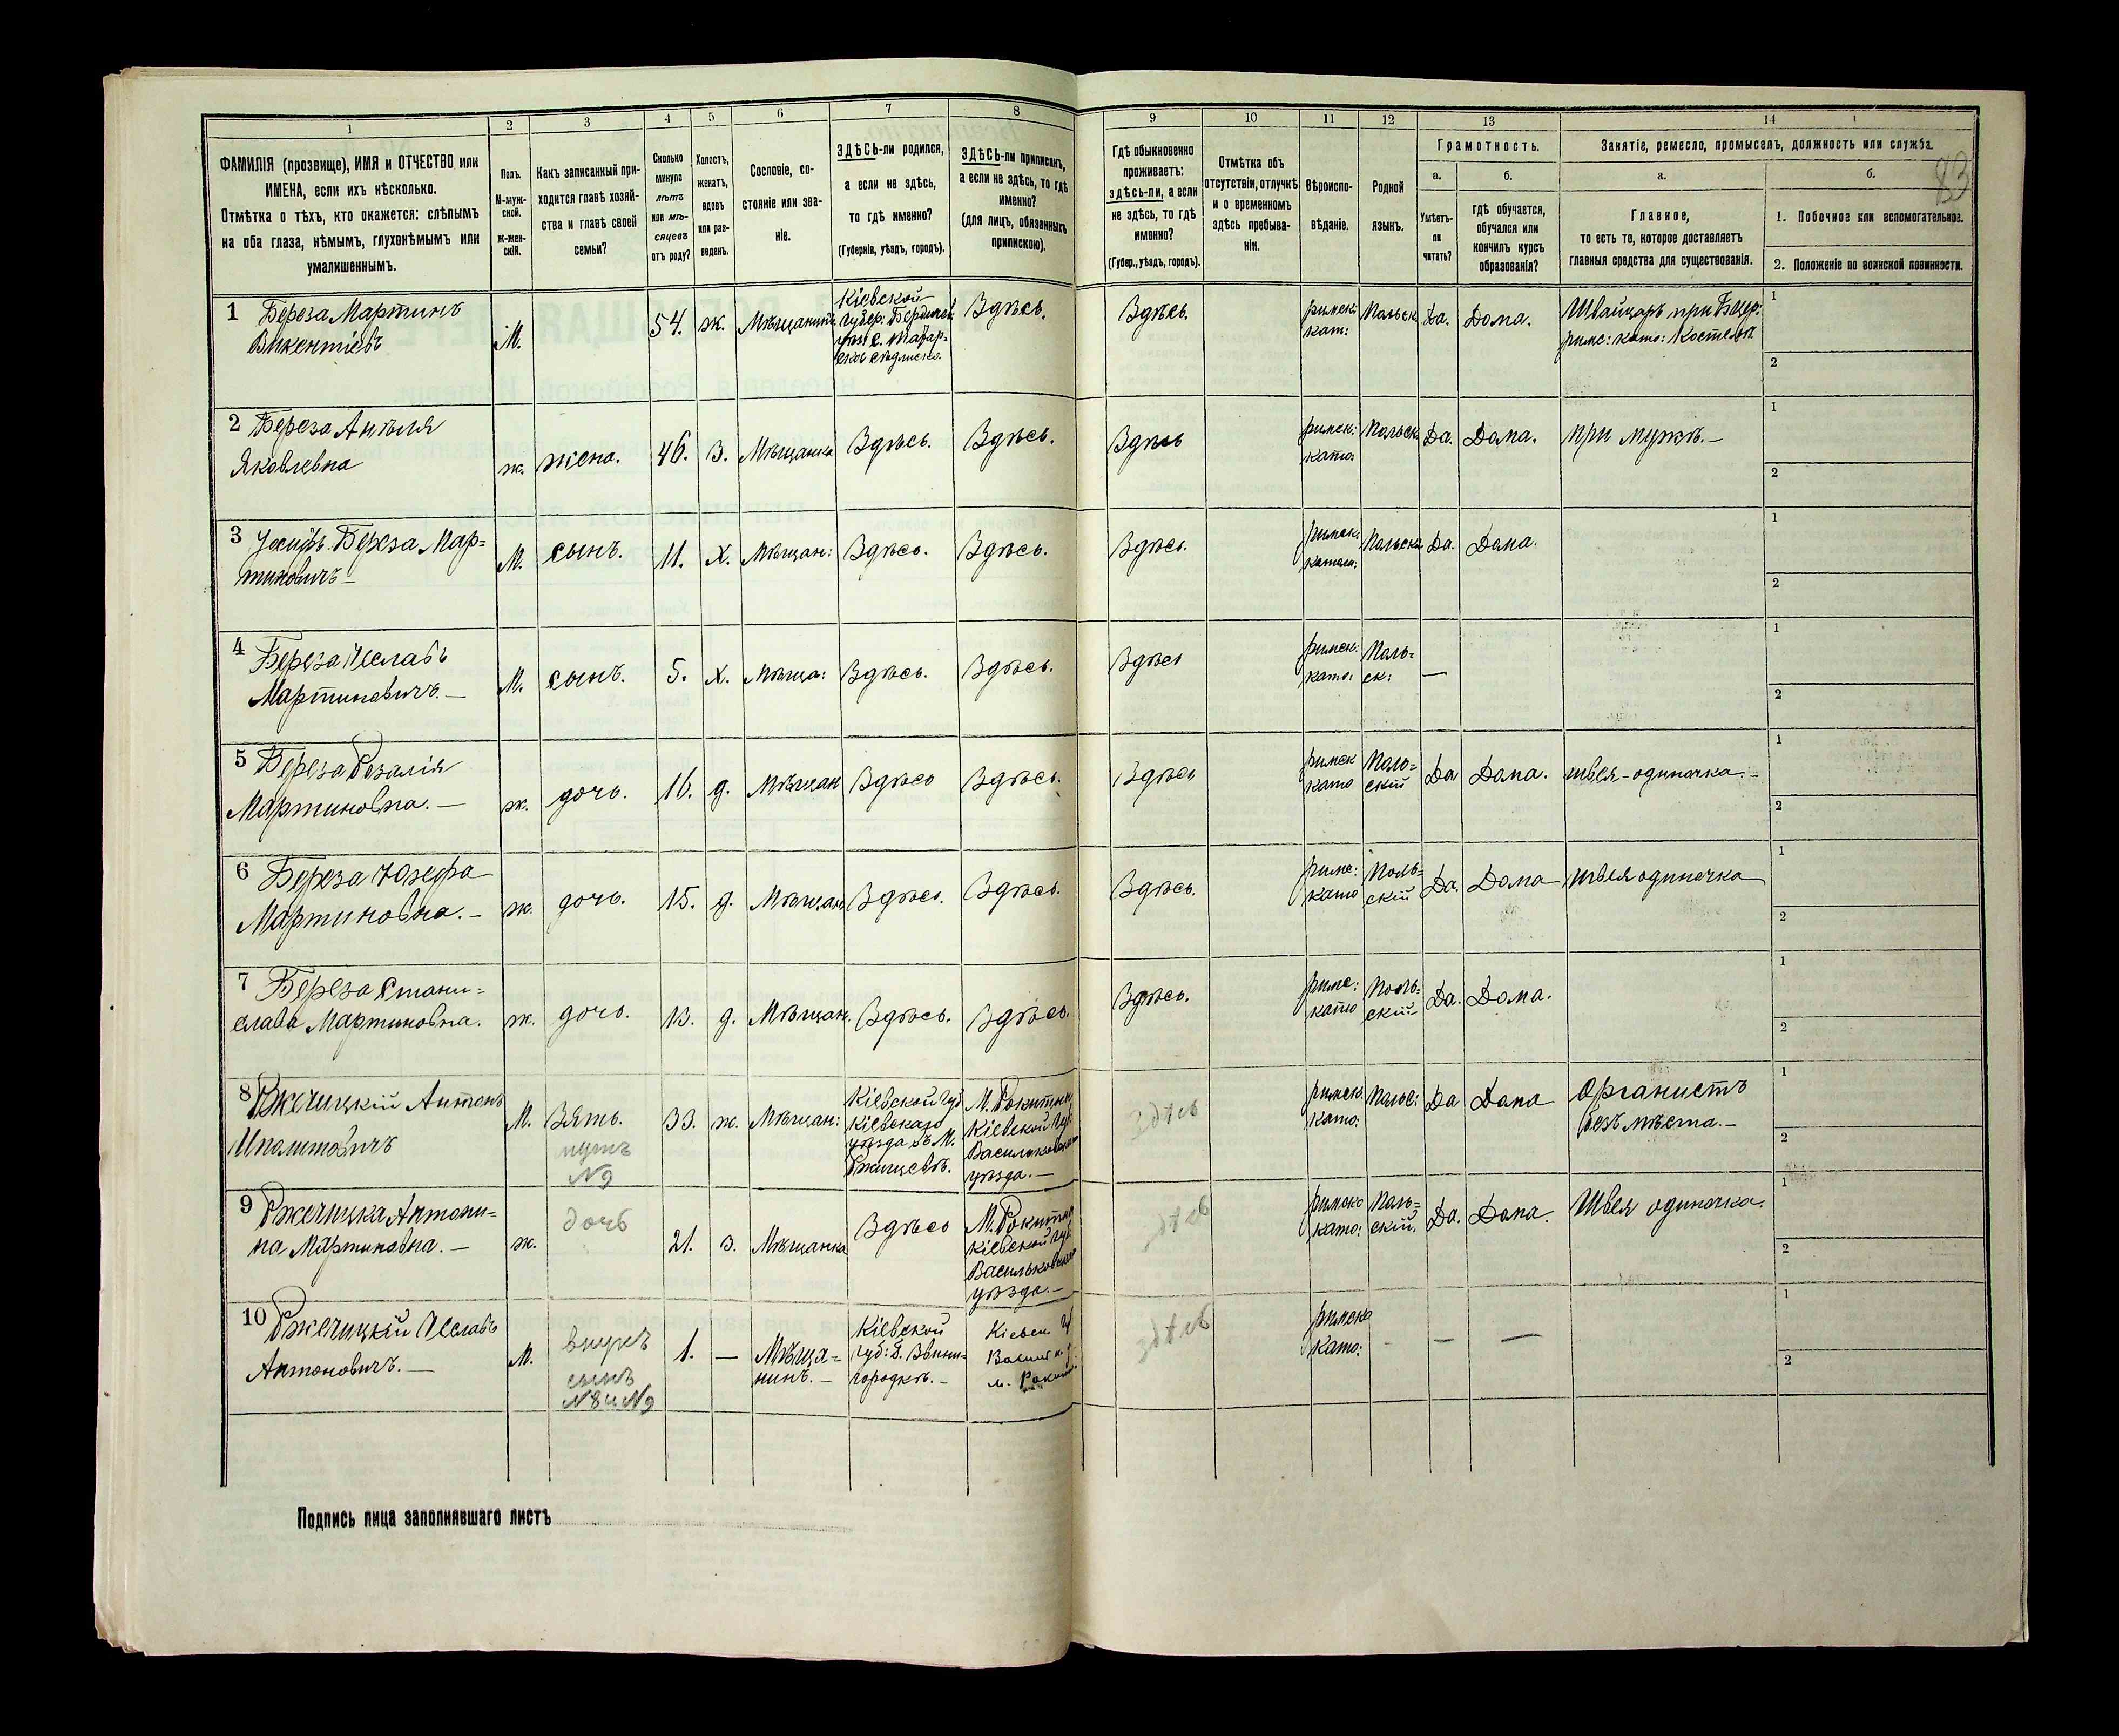 83
1
2
3
4
5
6
7
8
9
10
11
12
13
14
ФАМИЛІЯ (прозвище), ИМЯ и ОТЧЕСТВО или
ИМЕНА, если ихъ нѣсколько.
Отмѣтка о тѣхъ, кто окажется: слѣпымъ
на оба глаза, нѣмымъ, глухонѣмымъ или
умалишеннымъ.
Полъ.
М-муж-
ской.
Ж-жен-
скій.
Какъ записанный при-
ходится главѣ хозяй-
ства и главѣ своей
семьи?
Сколько
минуло
лѣтъ
или мѣ-
сяцевъ
отъ роду?
Холостъ,
женатъ,
вдовъ
или раз-
веденъ.
Сословіе, со-
стояніе или зва-
ніе.
ЗДѢСЬ-ли родился,
а если не здѣсь,
то гдѣ именно?
(Губернія, уѣздъ, городъ).
ЗДѢСЬ-ли приписанъ,
а если не здѣсь, то гдѣ
именно?
(для лицъ, обязанныхъ
припискою).
Гдѣ обыкновенно
проживаетъ:
здѣсь-ли, а если
не здѣсь, то гдѣ
именно?
(Губер., уѣздъ, городъ).
Отмѣтка объ
отсутствіи, отлучкѣ
и о временномъ
здѣсь пребыва-
ніи.
Вѣроиспо-
вѣданіе.
Родной
языкъ.
Грамотность.
а.
Умѣетъ-
ли
читать?
б.
гдѣ обучается,
обучался или
кончилъ курсъ
образованія?
Занятіе, ремесло, промыселъ, должность или служба.
а.
Главное,
то есть то, которое доставляетъ
главныя средства для существованія.
б.
1. Побочное или вспомогательное.
2. Положеніе по воинской повинности.
1 Береза Мартинъ
Викентіевъ
М.
54.
ж.
Мѣщанинъ
Кіевской
губер:
Здѣсь.
Здѣсь.
римск:
кат:
Польск
Да.
Дома.
Швайцаръ при
римс: като: Костелѣ
1
2
2 Береза Анѣля
Яковлевна
ж.
жена.
46.
З.
Мѣщанка
Здѣсь.
Здѣсь.
Здѣсь
римск:
като:
Польск.
Да.
Дома.
при мужѣ.—
1
2
3 Береза Мар=
тиновичъ—
М.
сынъ.
11.
Х.
Мѣщан:
Здѣсь.
Здѣсь.
Здѣсь.
римск.
католи:
Польска
Да.
Дома.
1
2
4 Береза Чеславъ
Мартиновичъ.—
М.
сынъ.
5.
Х.
Мѣща:
Здѣсь.
Здѣсь.
Здѣсь
римск:
като:
Поль=
ск:
—
1
2
5 Береза Розалія
Мартиновна.—
ж.
дочь.
16.
д.
Мѣщан
Здѣсь
Здѣсь.
Здѣсь
римск
като
Поль=
скій
Да
Дома.
швея-одиночка.—
1
2
6 Береза Юзефа
Мартиновна.—
ж.
дочь.
15.
д.
Мѣщан
Здѣсь.
Здѣсь.
Здѣсь.
римс:
като
Поль=
скій
Да.
Дома
швея одиночка
1
2
7 Береза Стани=
слава Мартиновна.
ж.
дочь.
13.
д.
Мѣщан.
Здѣсь.
Здѣсь.
Здѣсь.
римс:
като
Поль=
скій
Да.
Дома.
1
2
8 Ржечицкій Антонъ
Иполитовичъ
М.
Зять.
мужъ
№9
33.
ж.
Мѣщан:
Кіевской губ
Кіевскаго
уѣзда въ М.
Ржищевѣ.
М. Рокитны
Кіевской губ
Васильковскаго
уѣзда.—
здѣсь
римск.
като:
Польс:
Да
Дома
Органистъ
безъ мѣста.—
1
2
9 Ржечицка Антони=
на Мартиновна.—
ж.
дочь
21.
з.
Мѣщанка
Здѣсь
М. Рокитны
Кіевской губ
Васильковскаго
уѣзда.—
здѣсь
римско
като:
Поль=
скій.
Да.
Дома.
Швея одиночка.
1
2
10 Ржечицкій Чеславъ
Антоновичъ.—
М.
внукъ
сынъ
№8 и №9
1.
—
Мѣща=
нинъ.—
Кіевской
губ: Г. Звени=
городкѣ.—
Кіевск. у
м. Рокитн
здѣсь
римско
Като:
-
—
—
1
2
Подпись лица заполнявшаго листъ